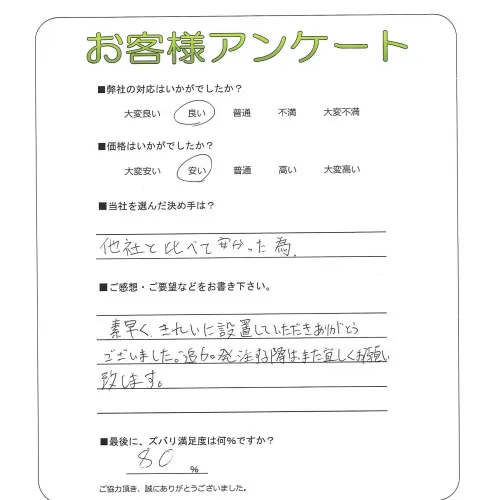 お客様アンケート
■弊社の対応はいかがでしたか？
大変良い 良い 普通 不満 大変不満
■価格はいかがでしたか？
大変安い 安い 普通 高い 大変高い
■当社を選んだ決め手は？
他社と比べて安かった為。
■ご感想・ご要望などをお書き下さい。
素早く、きれいに設置していただきありがとう
ございました。追加発注する際はまた宜しくお願い
致します。
■最後に、ズバリ満足度は何％ですか？
80 ％
ご協力頂き、誠にありがとうございました。